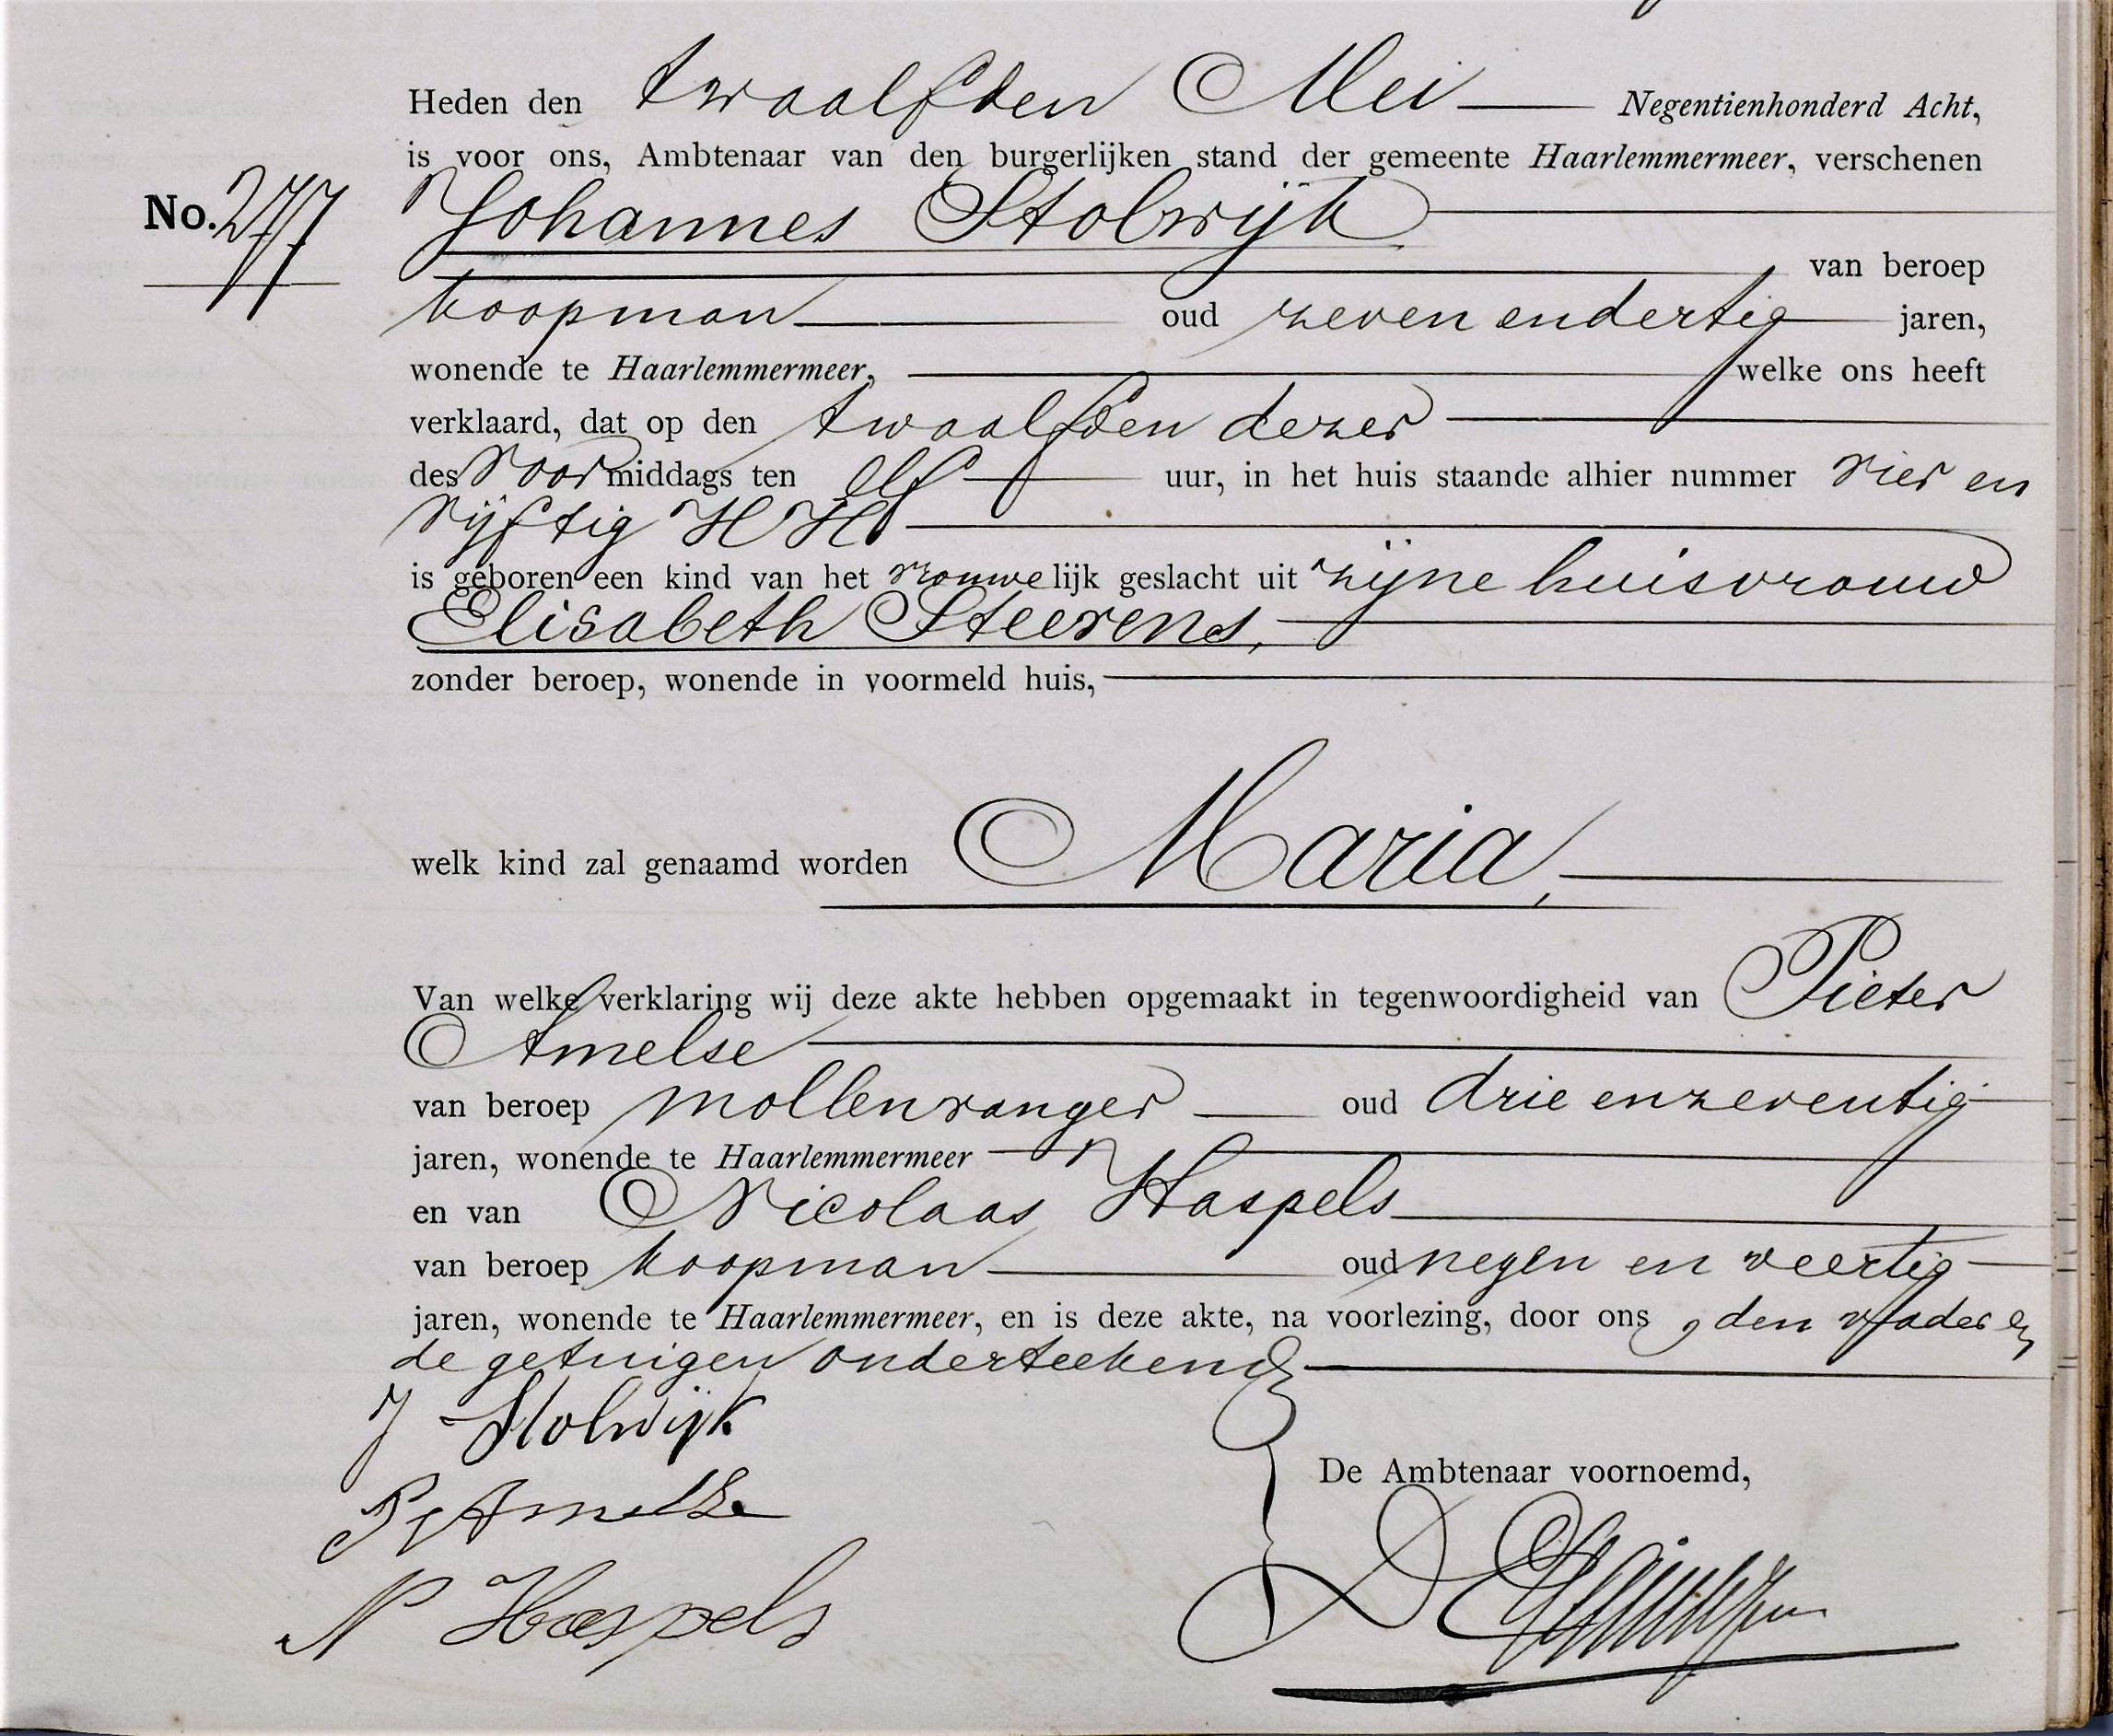 Heden den twaalfden Mei Negentienhonderd Acht,
is voor ons, Ambtenaar van den burgerlijken stand der gemeente Haarlemmermeer, verschenen
No. 277 Johannes Stolwijk
van beroep
koopman oud zeven en dertig jaren,
wonende te Haarlemmermeer, welke ons heeft
verklaard, dat op den twaalfden dezer
des voormiddags ten elf uur, in het huis staande alhier nummer vier en
vijftig HH
is geboren een kind van het vrouwelijk geslacht uit zijne huisvrouw
Elisabeth Steevens,
zonder beroep, wonende in voormeld huis,
welk kind zal genaamd worden Maria,
Van welke verklaring wij deze akte hebben opgemaakt in tegenwoordigheid van Pieter
Amelse
van beroep mollenvanger oud drie en zeventig
jaren, wonende te Haarlemmermeer
en van Nicolaas Haspels
van beroep koopman oud negen en veertig
jaren, wonende te Haarlemmermeer, en is deze akte, na voorlezing, door ons, den vader en
de getuigen onderteekend
J Stolwijk
P Amelse
De Ambtenaar voornoemd,
N Haspels